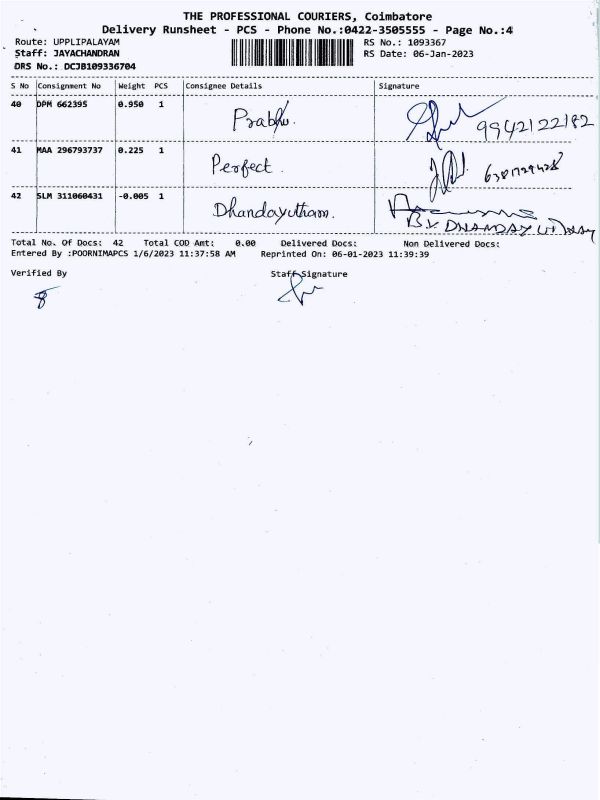 THE PROFESSIONAL COURIERS, Coimbatore
Delivery Runsheet - PCS - Phone No.:0422-3505555 - Page No.:4
Route: UPPLIPALAYAM RS No.: 1093367
Staff: JAYACHANDRAN RS Date: 06-Jan-2023
DRS No.: DCJB109336704
S No Consignment No Weight PCS Consignee Details Signature
40 DPM 662395 0.950 1 Prabhu. 9942122182
41 MAA 296793737 0.225 1 Perfect.
42 SLM 311060431 -0.005 1 Dhandayutham.
Total No. Of Docs: 42 Total COD Amt: 0.00 Delivered Docs: Non Delivered Docs:
Entered By :POORNIMAPCS 1/6/2023 11:37:58 AM Reprinted On: 06-01-2023 11:39:39
Verified By Staff Signature